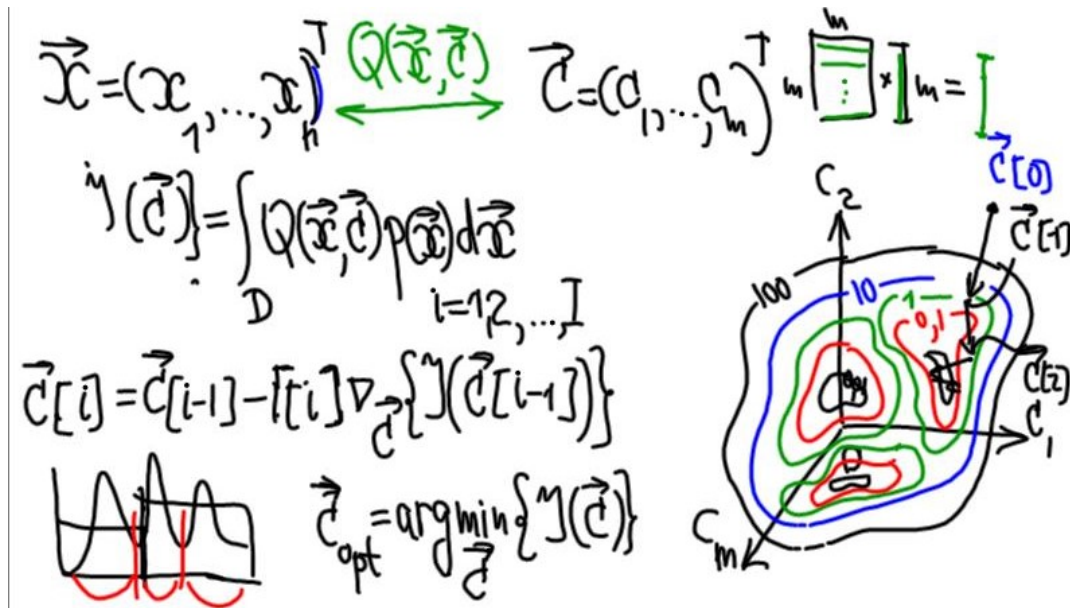 x⃗ = (x₁, ..., xₙ)ᵀ Q(x⃗, c⃗) c⃗ = (c₁, ..., cₘ)ᵀ m m × m =
J(c⃗)} = ∫ Q(x⃗, c⃗) p(x⃗) dx⃗
D i=1,2,...,I
c⃗[i] = c⃗[i-1] - Γ[i] ∇c⃗ {J(c⃗[i-1])}
c⃗opt = arg min {J(c⃗)}
c⃗
c⃗[0]
C₂ c⃗[1]
100 10 1 0,1
c⃗[2]
C₁
Cₘ